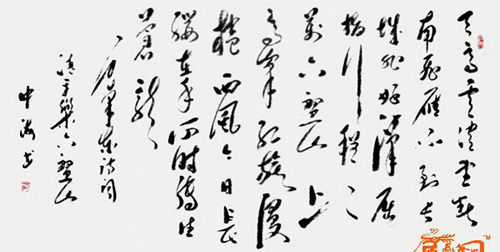 天高云淡望断
南飞雁不到长
城非好汉屈
指行程二
万六盘山上
高峰红旗漫
卷西风今日长
缨在手何时缚住
苍龙
右毛主席诗词
清平乐六盘山